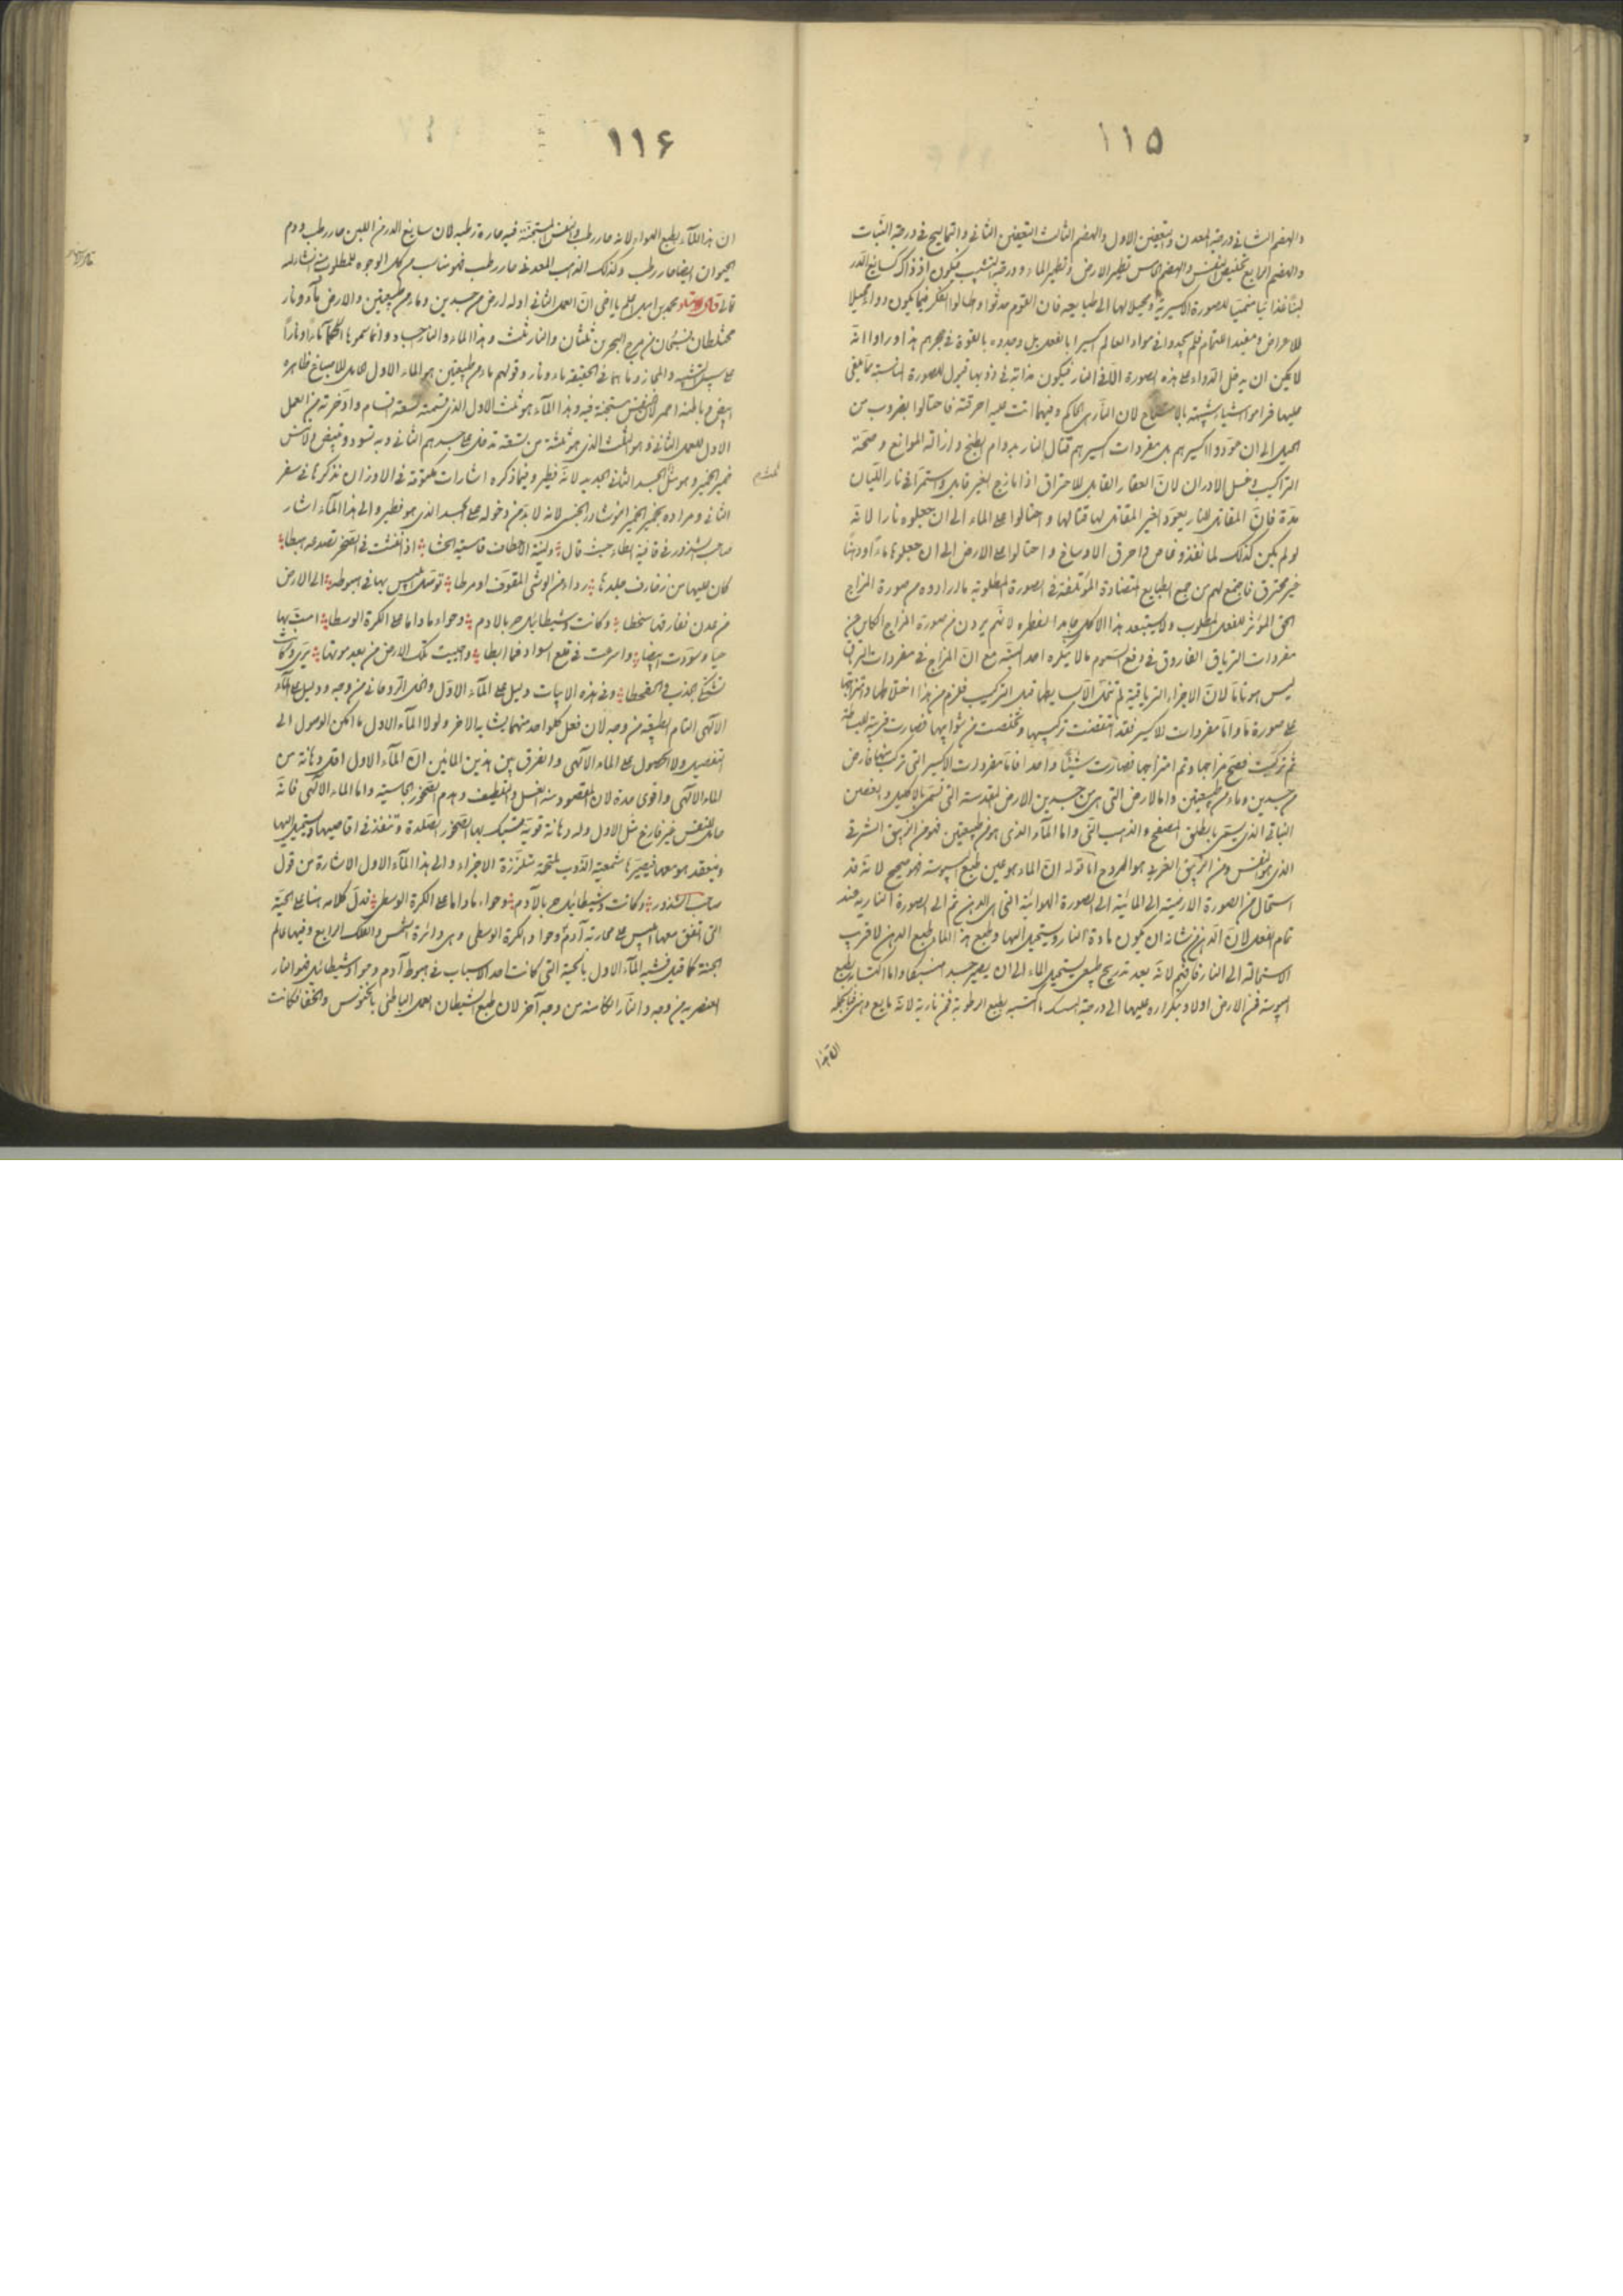 ١١٥
والهضم الثانى فى درجة المعدن والتعفين الاول والهضم الثالث التعفين الثانى والتماليح فى درجة النبات
والهضم الرابع تخليص النفس والهضم الخامس تطهير الارض وتطهير الماء ودرجة التشبيب فيكون اذ ذاك كسايغ الدر
لبنا غذائيا منميا للصورة الاكسيرية ومحيلا لها الى طبايعه فان القوم حدقوا واطالوا الفكر فيما يكون دواء مميلا
للاعراض ومفيدا للتمام فلم يجدوا فى مواد العالم اكسيرا بالفعل بل وجدوه بالقوة فى حجرهم هذا وراوا انه
لا يمكن ان يدخل الدواء على هذه الصورة الا فى النار فيكون مذابة فى ذوبها قبول للصورة المناسبة مما يلقى
عليها فراموا اشيا شبيهة بالاشباح لان النار هى الحاكم وفيهما اتت عليه احرقته فاحتالوا بضروب من
الحيل الى ان عودوا اكسيرهم بل مفردات اكسيرهم قتال النار بدوام الطبخ وازالة الموانع وصحة
التراكيب وغسل الادران لان العقار القابل للاحتراق اذا مازج لغير قابل واستمرا فى نار اللتيان
مدة فان المقاتل للنار يعود الغير المقاتل لها قتالها واحتالوا على الماء الى ان جعلوه نارا لانه
لو لم يكن كذلك لما نفذ وغاص واحرق الاوساخ واحتالوا على الارض الى ان جعلوها ماء او دهنا
غير محترق فاجتمع لهم من جميع الطبايع المتضادة المؤتلفة فى الصورة المطلوبة ما ارادوه من صورة المزاج
الحق المؤثر للفعل المطلوب ولا يستبعد هذا الا كل جامد الفطره لانهم يردون من صورة المزاج الكاين من
مفردات الترياق الفاروق فى دفع السموم ما لا ينكره احد البته مع ان المزاج فى مفردات الترياق
ليس هو تاما لان الاجزاء الترياقية لم تنحل الا بسايطها قبل التركيب فلزم من هذا اختلاطها وامتزاجها
على صورة ما واما مفردات الاكسير فقد انتقضت تركيبها وتخلصت من شوايبها فصارت قريبة للبساطة
ثم تركبت فصح مزاجها وتم امتزاجها فصارت شيئا واحدا فاما مفردات الاكسير التى تركب منها فارض
من جسدين وماء من طبيعتين واما الارض التى هى من جسدين الارض المقدسة التى تسمى بالاكليل والعصين
النباتى الذى يسمى بالطلق المصفح والذهب النقى واما الماء الذى هو من طبيعتين فهو من الزيبق الشرقى
الذى هو النفس ومن الزيبق الغربى هو الروح اما قوله ان الماء هو عين طبع اليبوسة فهو صحيح لانه قد
استحال من الصورة الارضية الى المائية الى الصورة الهوائية التى هى الدهن ثم الى الصورة النارية عند
تمام الفعل لان الدهن من شانه ان يكون مادة النار ويستحيل اليها وطبع هذا الماء طبع الدهن لا قرب
الاستحالة الى النار فافهم لانه بعد تدريج طبيعى يستحيل الماء الى ان يصير جسدا مشتبكا واما اكتسابه بطبع
اليبوسة فمن الارض اولا وبتكراره عليها الى درجة التمسك ما اكتسبه بطبع الرطوبة فمن نارية لانه مايع دهنى فبالجملة
ان هذا
١١۶
ان هذا الماء بطبع الهواء لانه حار رطب والنفس المستجنة فيه حارة رطبه لان سايغ الدر من اللبن حار رطب ودم
الحيوان ايضا حار رطب وكذلك الذهب المعدنى حار رطب فهو مناسب من كل الوجوه للمطلوب منه
قال محمد بن اميل اعلم يا اخى ان العمل الثانى اوله ارض من جسدين وماء من طبيعتين والارض ماء ونار
مختلطان ينتجان من مرج البحرين ثلثان والنار ثلث وهذا الماء والنار جساد وانما سموها الحكماء ماء او نارا
على سبيل التشبيه والمجاز وما هما فى الحقيقة ماء ونار وقولهم ماء من طبيعتين هو الماء الاول حامل للاصباغ ظاهره
ابيض وباطنه احمر لان النفس مستجنة فيه وهذا الماء هو ثلث الاول الذى قسمته لتسعة اقسام وادخرته من العمل
الاول للعمل الثانى وهو الثلث الذى هو ثلثة من تسعة تدخل على جسدهم الثانى وبه تسود وتبيض ولانش
خمير الخمير وهو مثل الجسد الثانى الجديد لانه فطير وفيما ذكره اشارات متفرقة فى الاوزان نذكرها فى سفر
الثانى ومراده بخمير الخمير النوشادر الجنس لانه لا بد من دخوله على الجسد الذى هو فطير والى هذا الماء اشار
صاحب الشذور فى قافية الطاء حيث قال ولينة الاعطاف قاسية الحشا اذا نفثت فى الصخر تصدعه هبطا
كان عليها من زخارف جلدها رداء من الوشى المفوف او مرطا توسل ابليس بها فى هبوطه الى الارض
من عدن ففارقها سخطا وكانت وشيطانيل حربا لادم وحواء ما داما على الكرة الوسطا امت بها
حيا وسودت ابيضا واسرعت فى قلع السواد فما ابطا واحييت تلك الارض من بعد موتها وكانت
تشكى الجدب فى القحطا وفى هذه الابيات دليل على الماء الاول والخل الروحانى من وجه ودليل على الماء
الالهى التام الطبيعة من وجه لان فعل كل واحد منهما يشابه الاخر ولولا الماء الاول ما امكن الوصول الى
التفصيل ولا الحصول على الماء الالهى والفرق بين هذين المائين ان الماء الاول اقل دهانة من
الماء الالهى واقوى حدة لان المقصود منه الغسل والتلطيف وهدم الصخور الجاسية واما الماء الالهى فانه
حامل للنفس غير فارغ مثل الاول وله دهانة قوية تتمسك بها الصخور الصلدة وتنفذ فى اقاصيها ويستحيل اليها
وينعقد هو معها فيصيرها شمعية الذوب ملتحمة متلززة الاجزاء والى هذا الماء الاول الاشارة من قول
صاحب الشذور وكانت وشيطانيل حربا لآدم وحواء ما داما على الكرة الوسطى فدل كلامه هنا على الحية
التى اتفق معها ابليس على محاربة آدم وحوا والكرة الوسطى وهى دائرة الشمس والفلك الرابع وفيها عالم
الجنة كما قيل فشبه الماء الاول بالحية التى كانت احد الاسباب فى هبوط آدم وحوا وشيطانيل فهو النار
العنصرية من وجه والنار الكامنة من وجه آخر لان طبع الشيطان العمل الباطنى بالخنوس والخفا فكانت